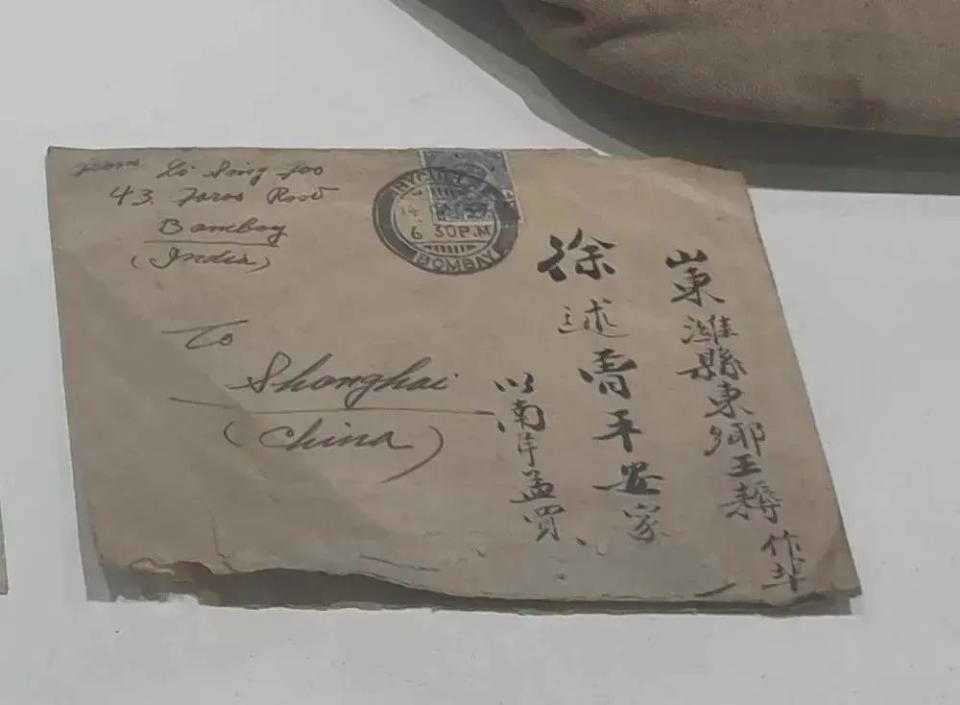 from Li Sing Foo
43. Faras Road
Bombay
(India)
6 30 P.M
BOMBAY
To
Shanghai
(China)
山東濰縣東鄉王耨
徐述青平安家
以南洋孟買